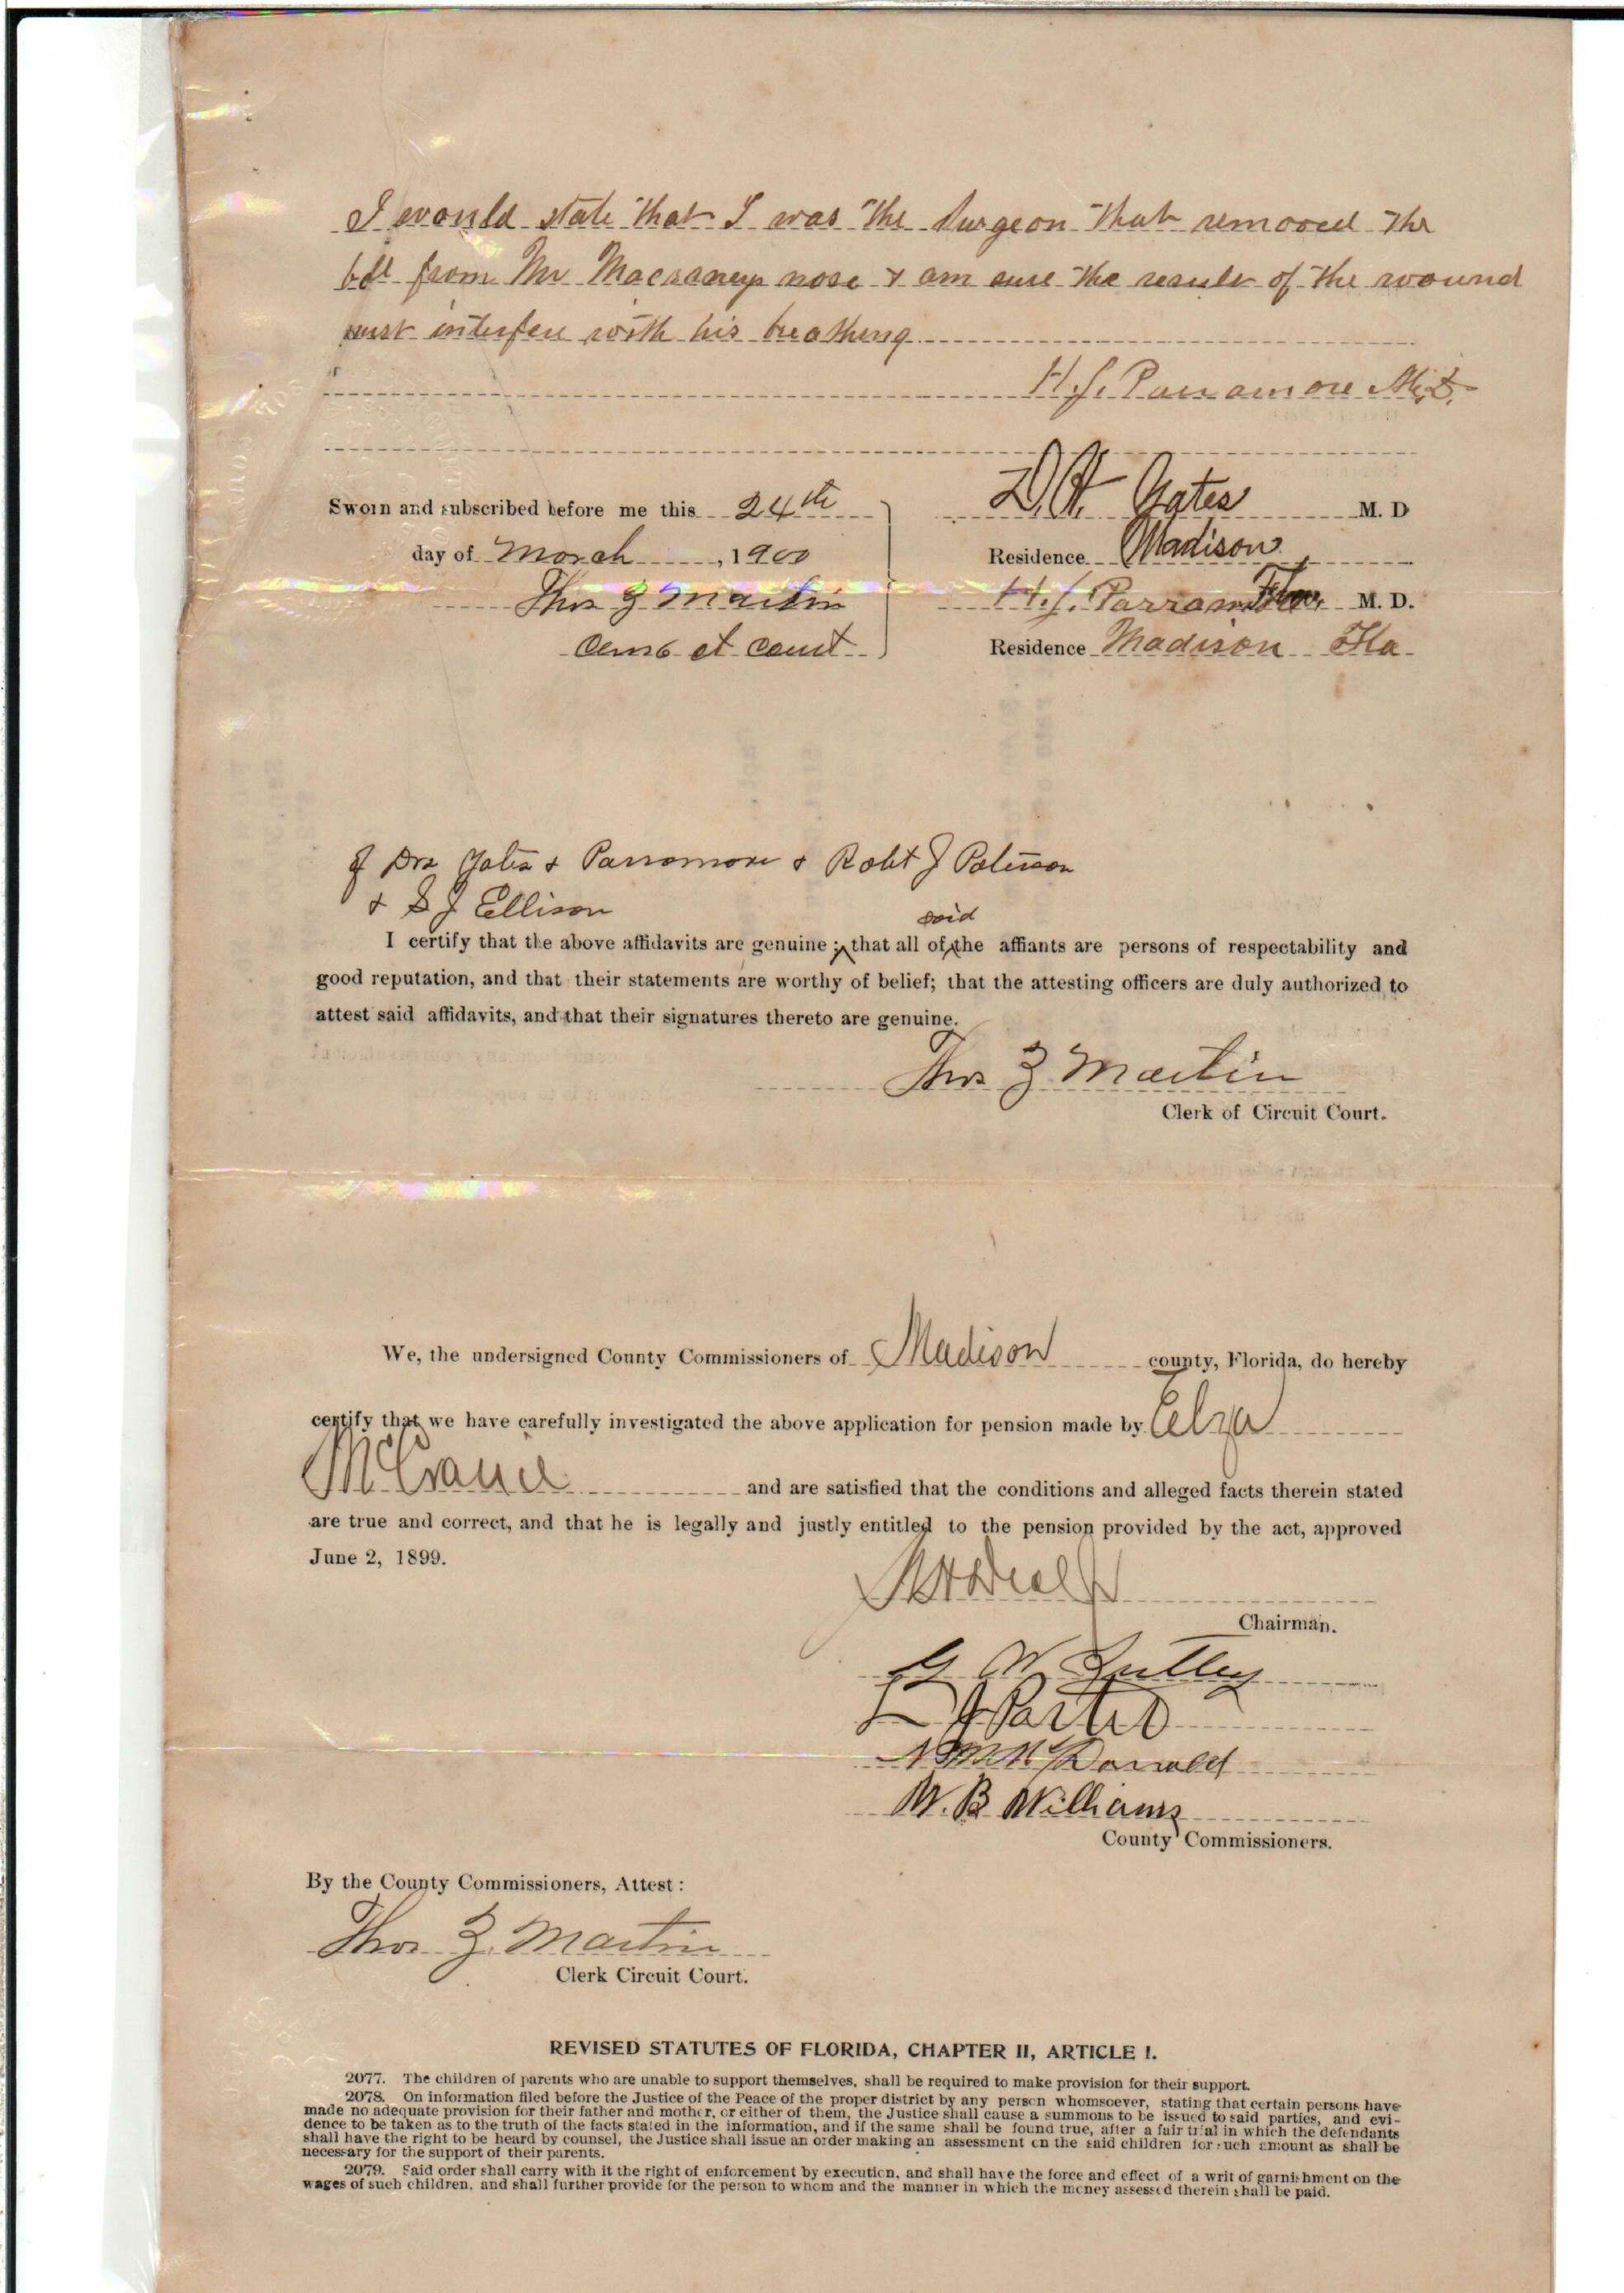 I would state that I was the Surgeon that removed the
ball from Mr nose & am sure the result of the wound
must interfere with his breathing
H.J. Parramore M.D.
Sworn and subscribed before me this 24th
day of March, 1900
Thos Z Martin
Court
D.H. Yates M. D
Residence Madison
Fla.
H.J. Parramore M. D.
Residence Madison Fla
of Drs Yates & Parramore & Robt J
& S J Ellison
said
I certify that the above affidavits are genuine; that all of the affiants are persons of respectability and
good reputation, and that their statements are worthy of belief; that the attesting officers are duly authorized to
attest said affidavits, and that their signatures thereto are genuine.
Thos Z Martin
Clerk of Circuit Court.
We, the undersigned County Commissioners of Madison county, Florida, do hereby
certify that we have carefully investigated the above application for pension made by Elza
McCranie and are satisfied that the conditions and alleged facts therein stated
are true and correct, and that he is legally and justly entitled to the pension provided by the act, approved
June 2, 1899.
Chairman.
G W
L J
McDonald
W. B Williams
County Commissioners.
By the County Commissioners, Attest:
Thos Z. Martin
Clerk Circuit Court.
REVISED STATUTES OF FLORIDA, CHAPTER II, ARTICLE I.
2077. The children of parents who are unable to support themselves, shall be required to make provision for their support.
2078. On information filed before the Justice of the Peace of the proper district by any person whomsoever, stating that certain persons have
made no adequate provision for their father and mother, or either of them, the Justice shall cause a summons to be issued to said parties, and evi-
dence to be taken as to the truth of the facts stated in the information, and if the same shall be found true, after a fair trial in which the defendants
shall have the right to be heard by counsel, the Justice shall issue an order making an assessment on the said children for such amount as shall be
necessary for the support of their parents.
2079. Said order shall carry with it the right of enforcement by execution, and shall have the force and effect of a writ of garnishment on the
wages of such children, and shall further provide for the person to whom and the manner in which the money assessed therein shall be paid.